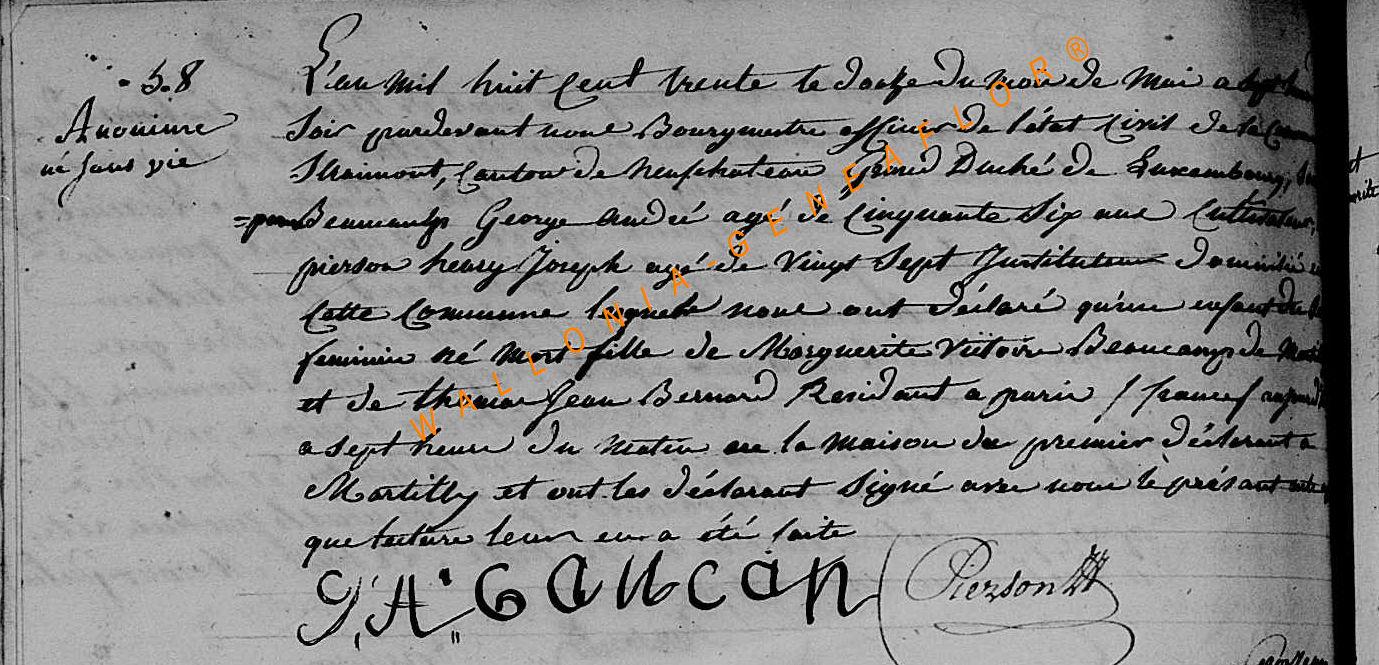 5.8
Anonime
né sans vie
L'an mil huit cent trente le douze du mois de Mai a sept
Soir pardevant nous Bourgmestre officier de l'état Civil de la Com
Straimont, Canton de Neufchateau Grand Duché de Luxembourg,
Beaucamp George André agé de Cinquante Six ans Cultivateur,
pierson henry Joseph agé de Vingt Sept Instituteur domicilié
Cette Commune lesquels nous ont déclaré qu'un enfant du
feminin né mort fille de Marguerite Victoire Beaucamp de
et de thomas Jean Bernard Residant a paris / france/
a sept heure du matin en la maison du premier déclarant a
Martilly et ont les déclarant Signé avec nous le présant acte
que lecture leur en a été faite
G, A, BAUCAN
Pierson
WALLONIA-GENEAFLOR®